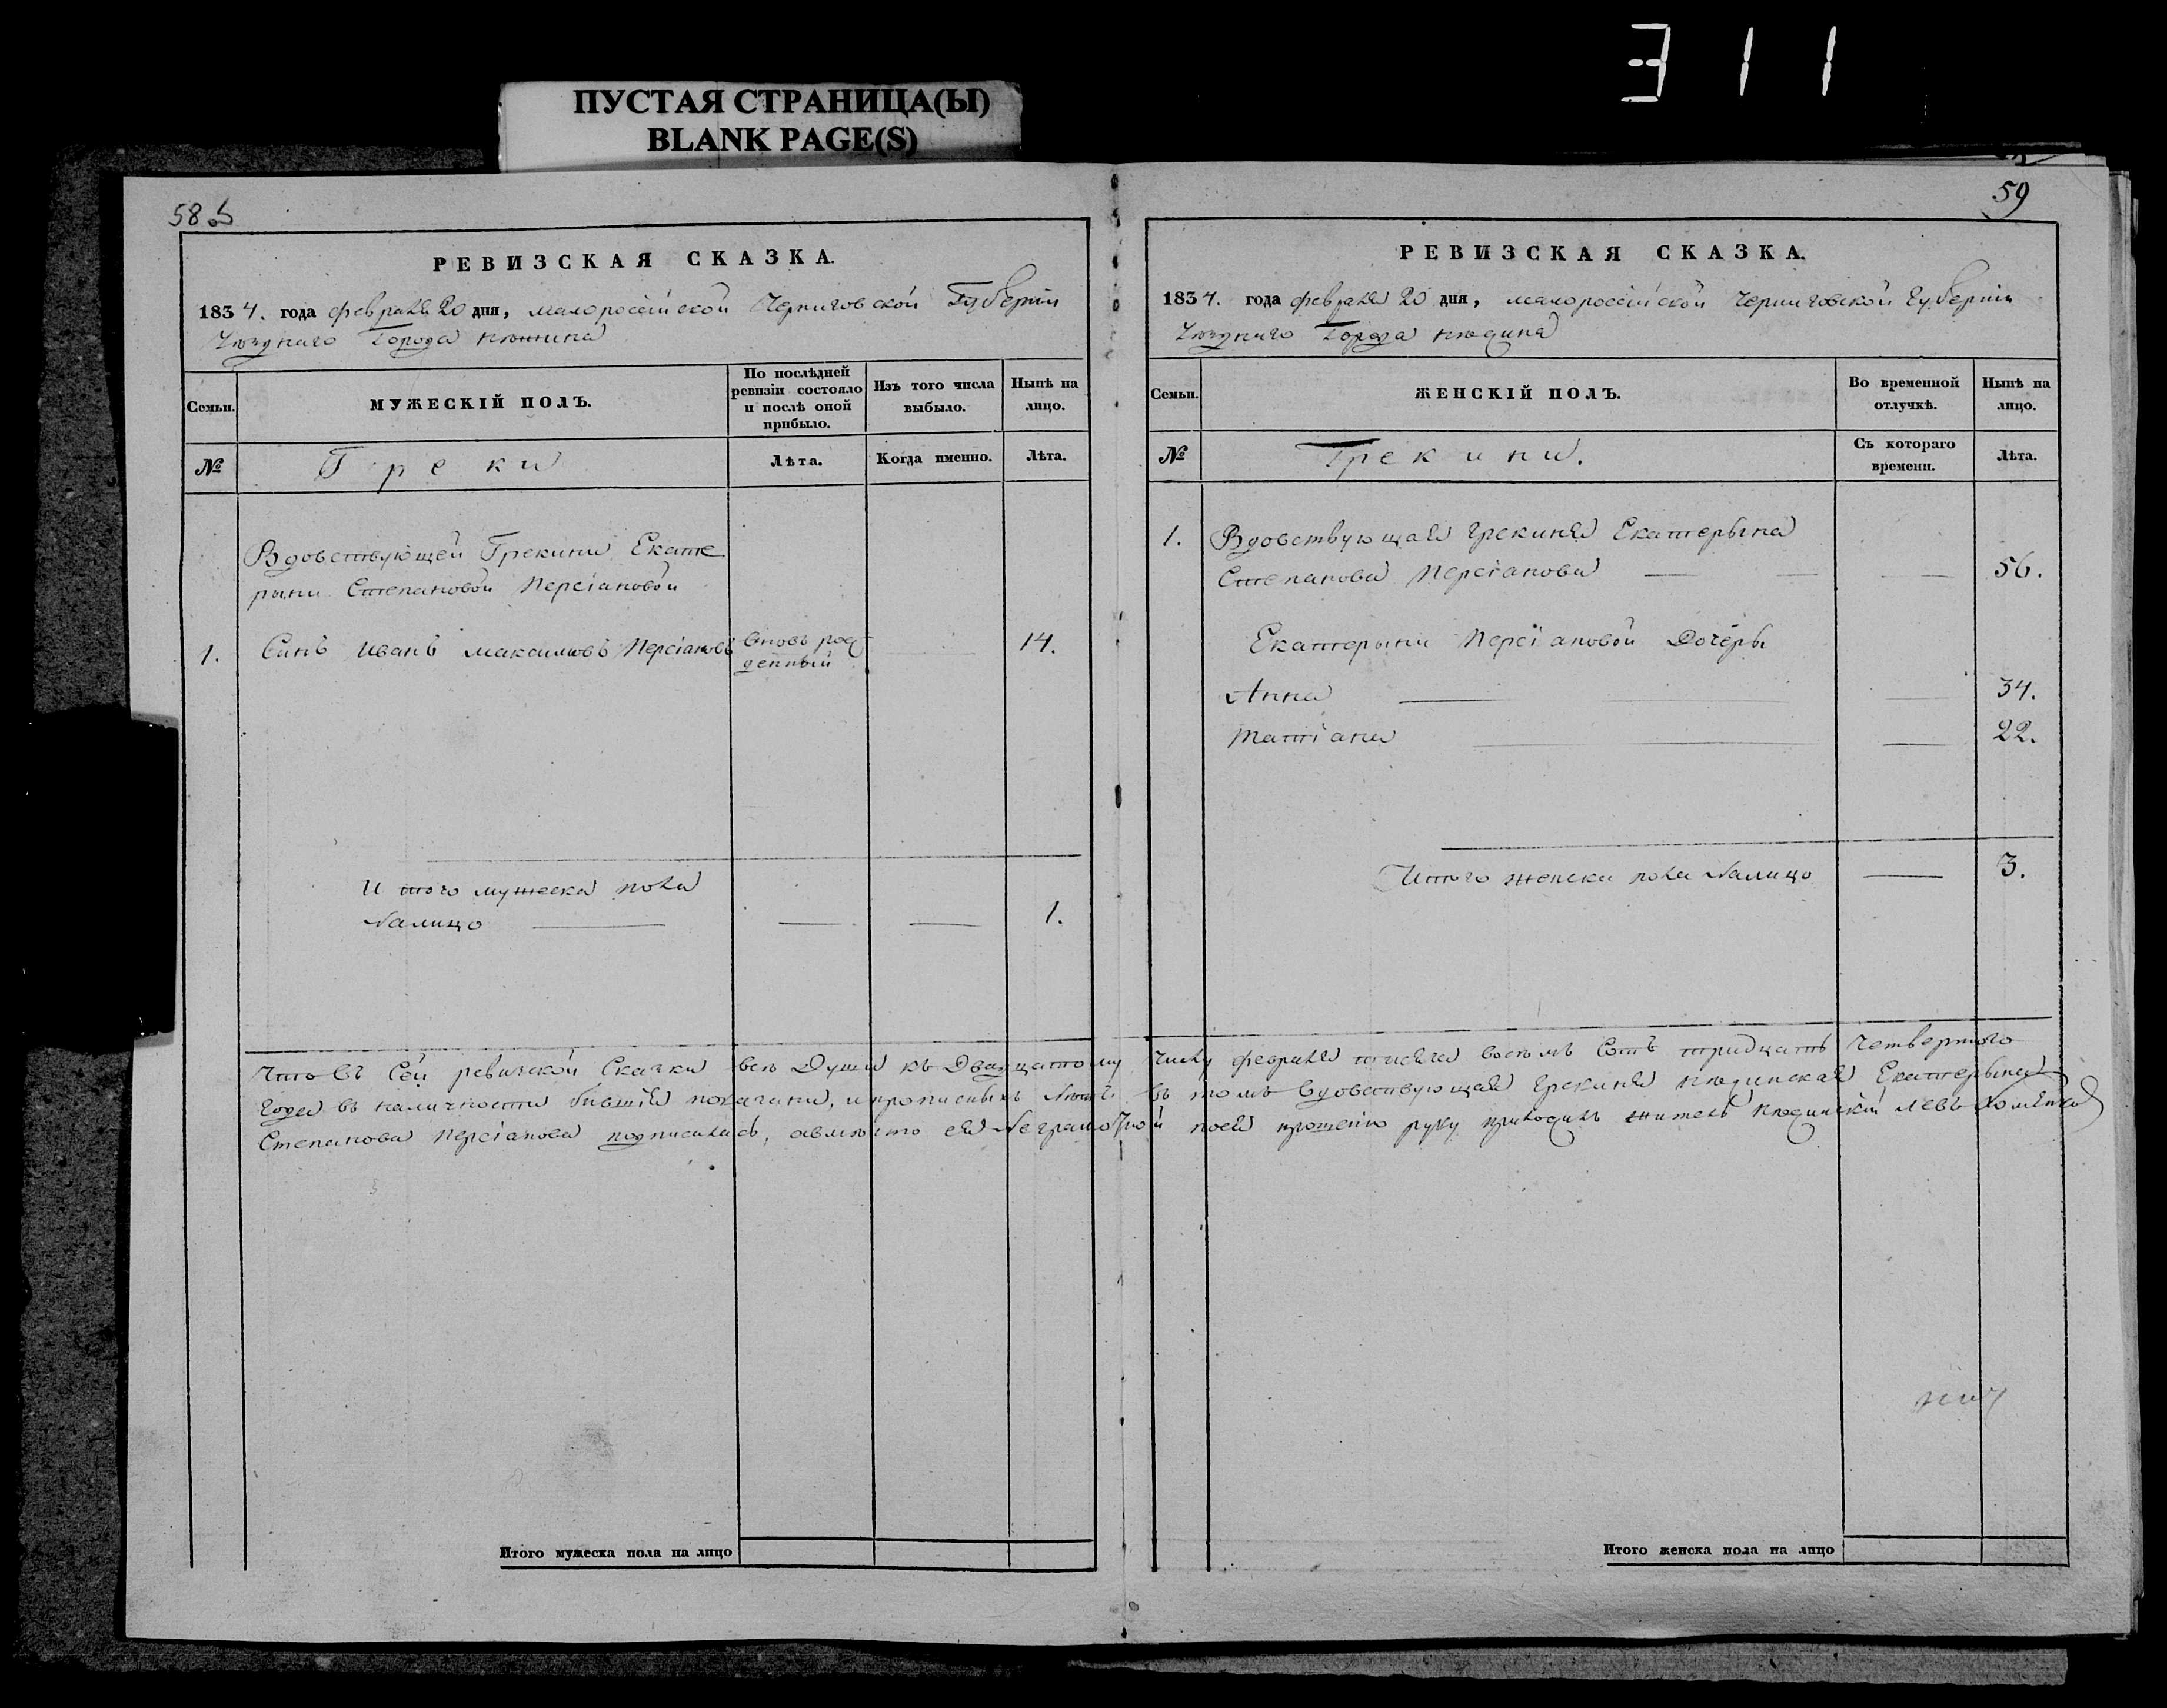 311
ПУСТАЯ СТРАНИЦА(Ы)
BLANK PAGE(S)
58
РЕВИЗСКАЯ СКАЗКА.
1834. года февраля 20 дня, малороссійской Черниговской Губерніи
Уезднаго Города нежина
Семьи.
МУЖЕСКІЙ ПОЛЪ.
По послѣдней ревизіи состояло и послѣ оной прибыло.
Изъ того числа выбыло.
Нынѣ на лицо.
№
Греки
Лѣта.
Когда именно.
Лѣта.
Вдовствующей Грекини Екате
рыни Степановой Персіановой
1. Синъ Иванъ максимовъ Персіановъ вновь рож
денный 14.
И того мужеска пола
Налицо 1.
59
РЕВИЗСКАЯ СКАЗКА.
1834. года февраля 20 дня, малороссійской черниговской губерніи
Уезднаго Города нежина
Семьи.
ЖЕНСКІЙ ПОЛЪ.
Во временной отлучкѣ.
Нынѣ на лицо.
№
Грекини.
Съ котораго времени.
Лѣта.
1. Вдовствующая грекиня Екатерына
Степанова Персіанова 56.
Екатерыни Персіановой Дочеры
Анна 34.
татіана 22.
Итого женска пола Налицо 3.
Что въ Сей ревизской Сказки все Души къ Двацатому числу февраля тисяча восемъ Сотъ тридцать Четвертого
Года въ наличности бившія показани, и прописныхъ нетъ въ томъ вдовствующая грекиня нежинская Екатерына
Степанова Персіанова подписалась, авместо ея Неграмотной поея прошению руку приложилъ житель Нежинскій Левъ Хоменко
Итого мужеска пола на лицо
Итого женска пола на лицо